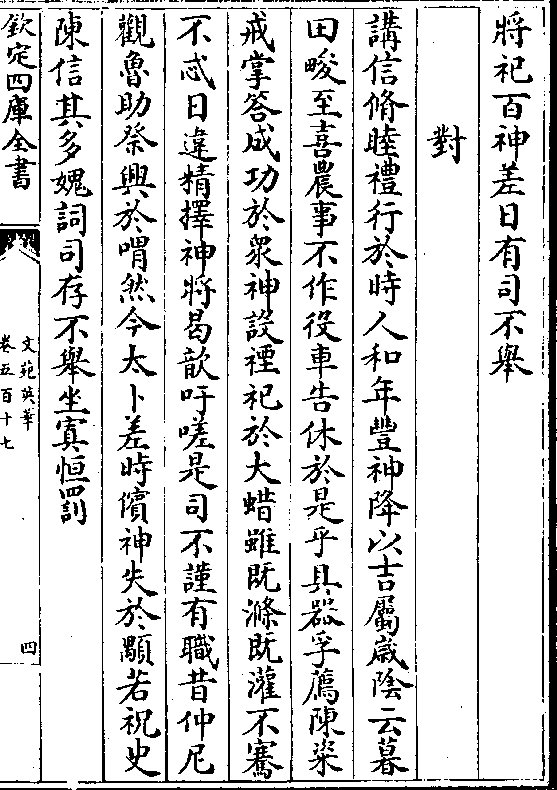 將祀百神差日有司不舉
對
講信脩睦禮行於時人和年豐神降以吉屬嵗隂云暮
田畯至喜農事不作役車告休於是乎具器孚薦陳粢
戒掌答成功於衆神設禋祀於大蜡雖既滌既灌不騫
不忒日違精擇神將曷歆吁嗟是司不謹有職昔仲尼
觀魯助祭興於喟然今太卜差時儐神失於顒若祝史
陳信其多媿詞司存不舉坐寘恒罰
欽定四庫全書
文苑英華
卷五百十七
四